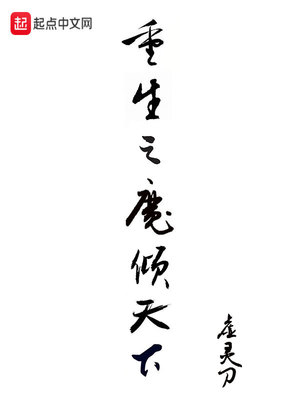 起点中文网
重生之魔倾天下
虚灵刀